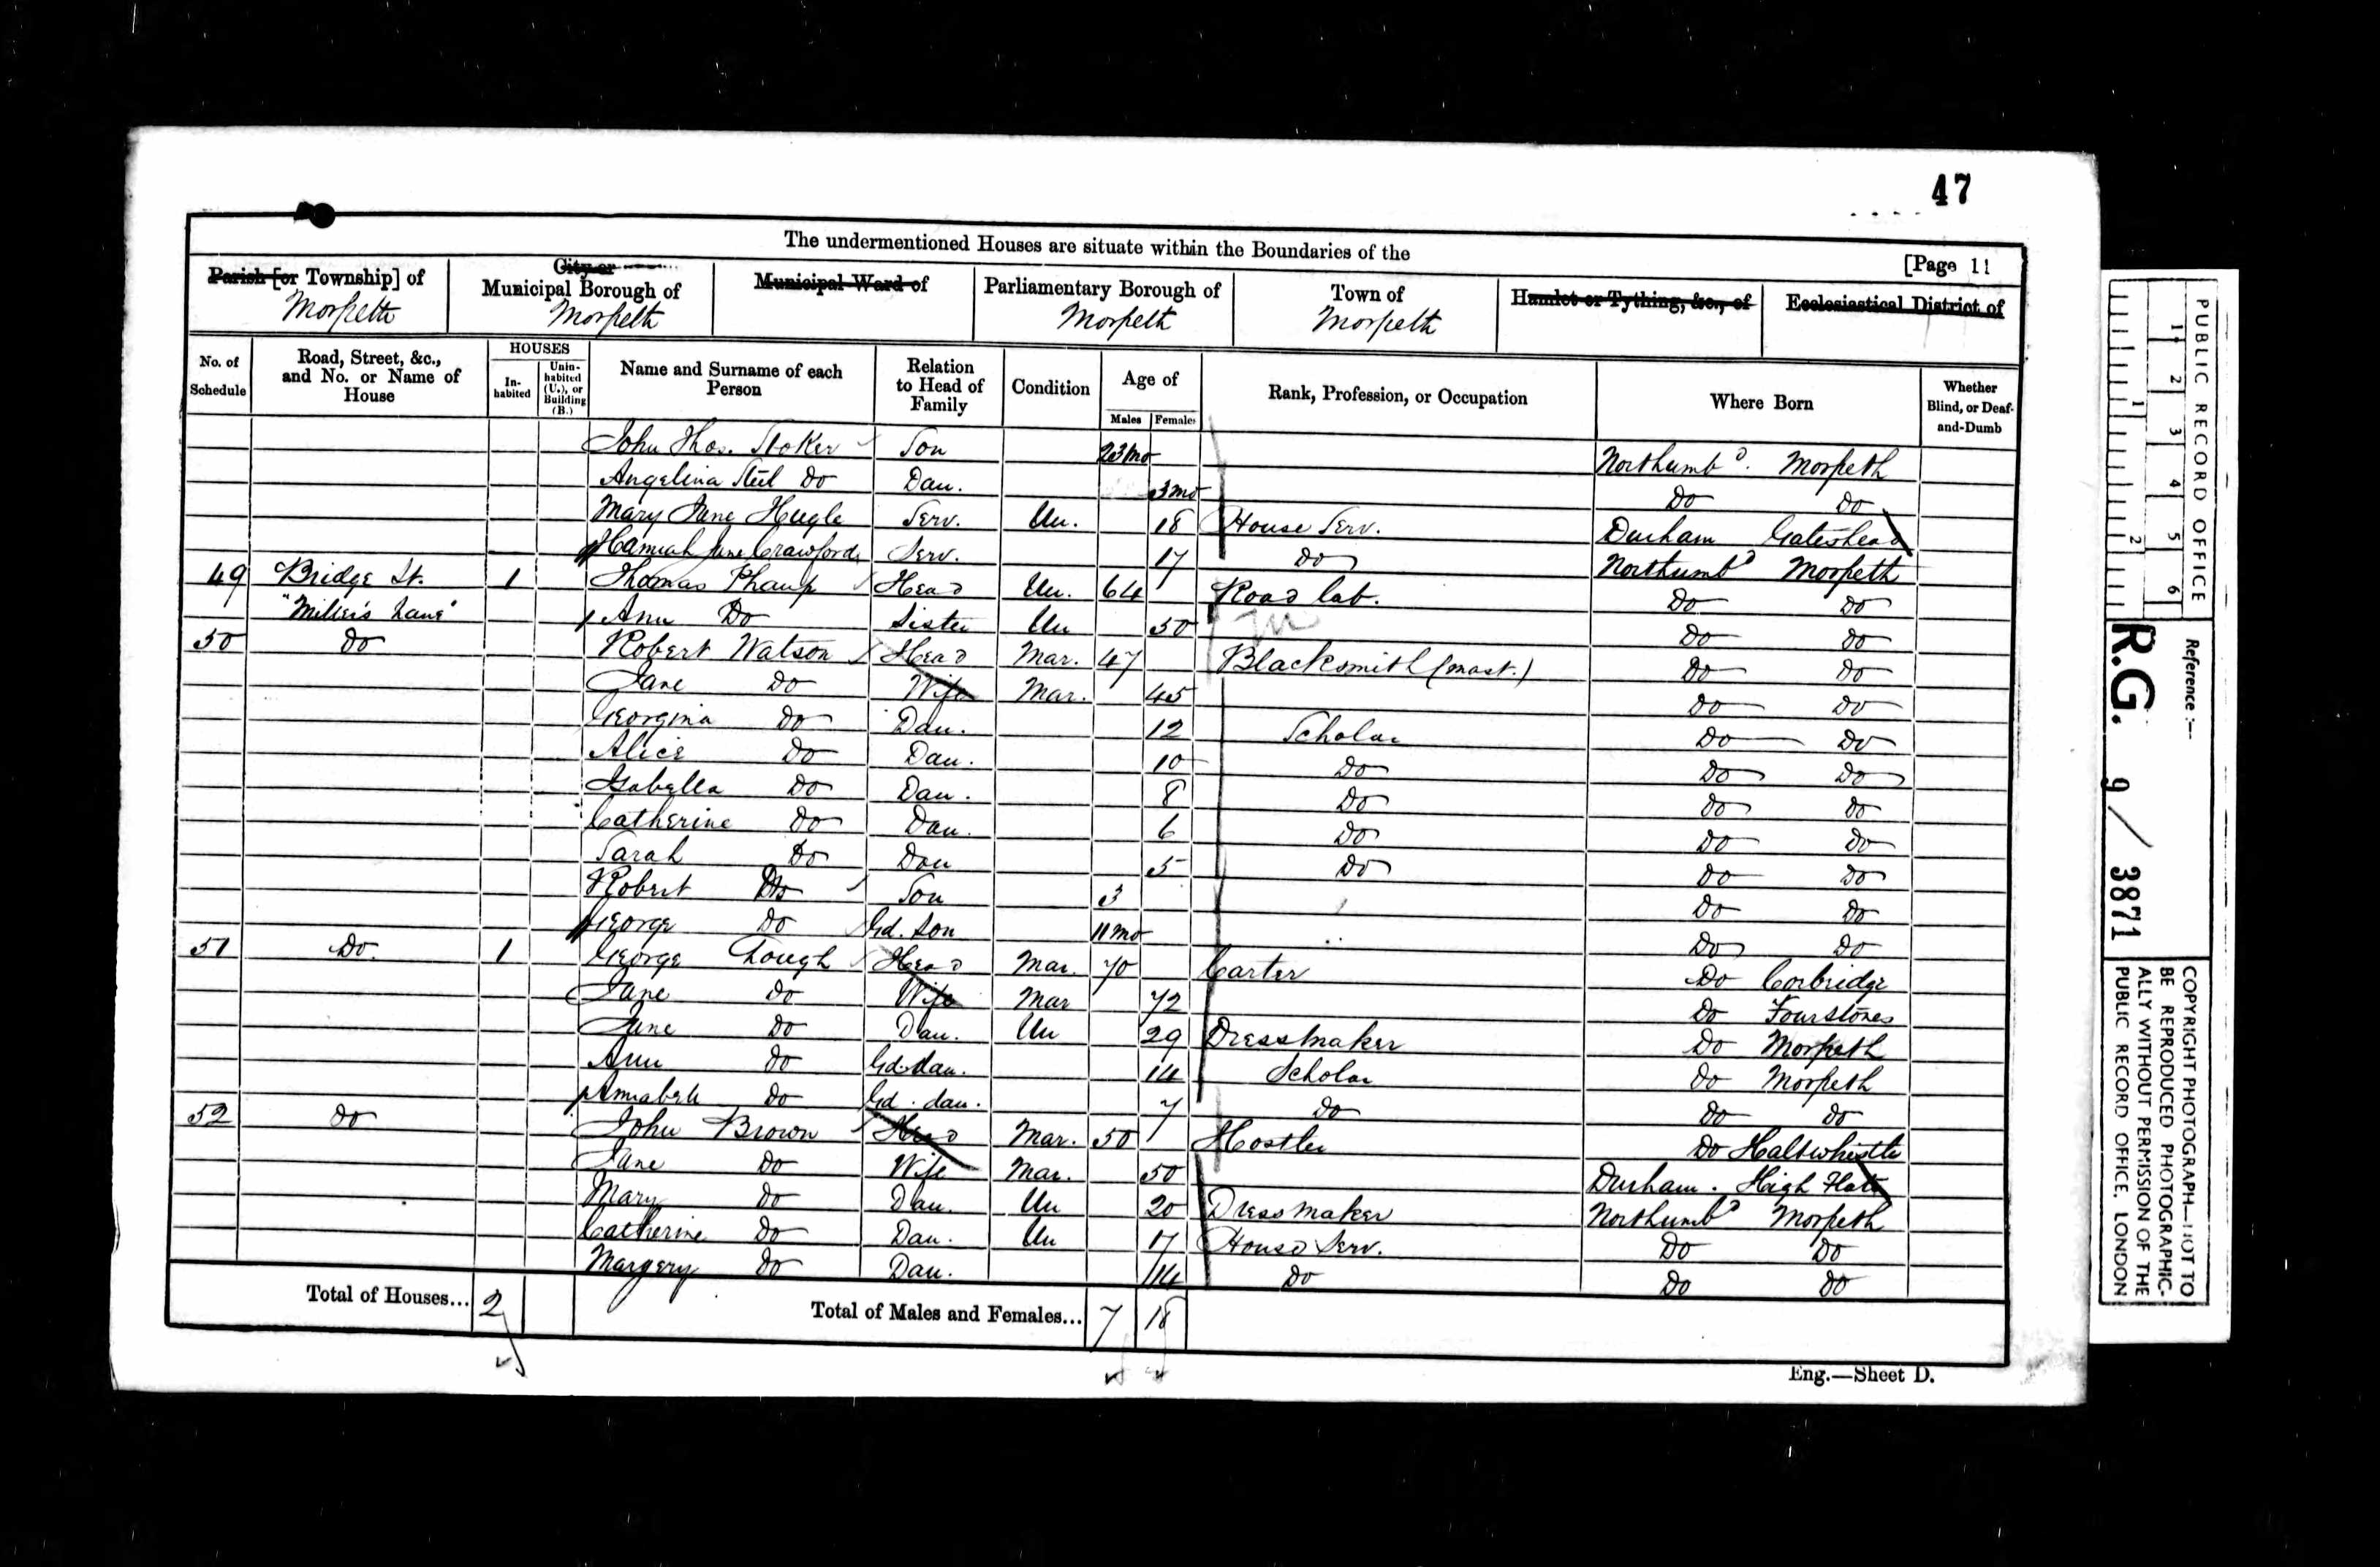 47
The undermentioned Houses are situate within the Boundaries of the
[Page 11
Parish [or Township] of Morpeth
City or Municipal Borough of Morpeth
Municipal Ward of
Parliamentary Borough of Morpeth
Town of Morpeth
Hamlet or Tything, &c., of
Ecclesiastical District of
No. of Schedule
Road, Street, &c., and No. or Name of House
HOUSES
In-habited
Unin-habited (U.), or Building (B.)
Name and Surname of each Person
Relation to Head of Family
Condition
Age of
Males Females
Rank, Profession, or Occupation
Where Born
Whether Blind, or Deaf-and-Dumb
John Thos. Stoker Son 23 mo Northumbd. Morpeth
Angelina Do Dau. 3 mo Do Do
Mary Jane Serv. Un. 18 House Serv. Durham Gateshead
Hannah Jane Crawford Serv. 17 Do Northumbd Morpeth
49 Bridge St. 1 Thomas Head Un. 64 Road lab. Do Do
"Miller's Lane" Ann Do Sister Un 50 Do Do
50 Do Robert Watson Head Mar. 47 Blacksmith (mast.) Do Do
Jane Do Wife Mar. 45 Do Do
Georgina Do Dau. 12 Scholar Do Do
Alice Do Dau. 10 Do Do Do
Isabella Do Dau. 8 Do Do Do
Catherine Do Dau. 6 Do Do Do
Sarah Do Dau 5 Do Do Do
Robert Do Son 3 Do Do
George Do Gd. Son 11 mo Do Do
51 Do. 1 George Head Mar. 70 Carter Do Corbridge
Jane Do Wife Mar 72 Do Fourstones
Jane Do Dau. Un 29 Dressmaker Do Morpeth
Ann Do Gd. dau. 14 Scholar Do Morpeth
Do Gd. dau. 7 Do Do Do
52 Do John Brown Head Mar. 50 Hostler Do Haltwhistle
Jane Do Wife Mar. 50 Durham. High
Mary Do Dau. Un 20 Dressmaker Northumbd Morpeth
Catherine Do Dau. Un 17 House Serv. Do Do
Margery Do Dau. 14 Do Do Do
Total of Houses... 2
Total of Males and Females... 7 18
Eng.—Sheet D.
PUBLIC RECORD OFFICE
1 2 3 4 5 6
1 2
Reference:—
R.G. 9/3871
COPYRIGHT PHOTOGRAPH—NOT TO
BE REPRODUCED PHOTOGRAPHIC-
ALLY WITHOUT PERMISSION OF THE
PUBLIC RECORD OFFICE, LONDON